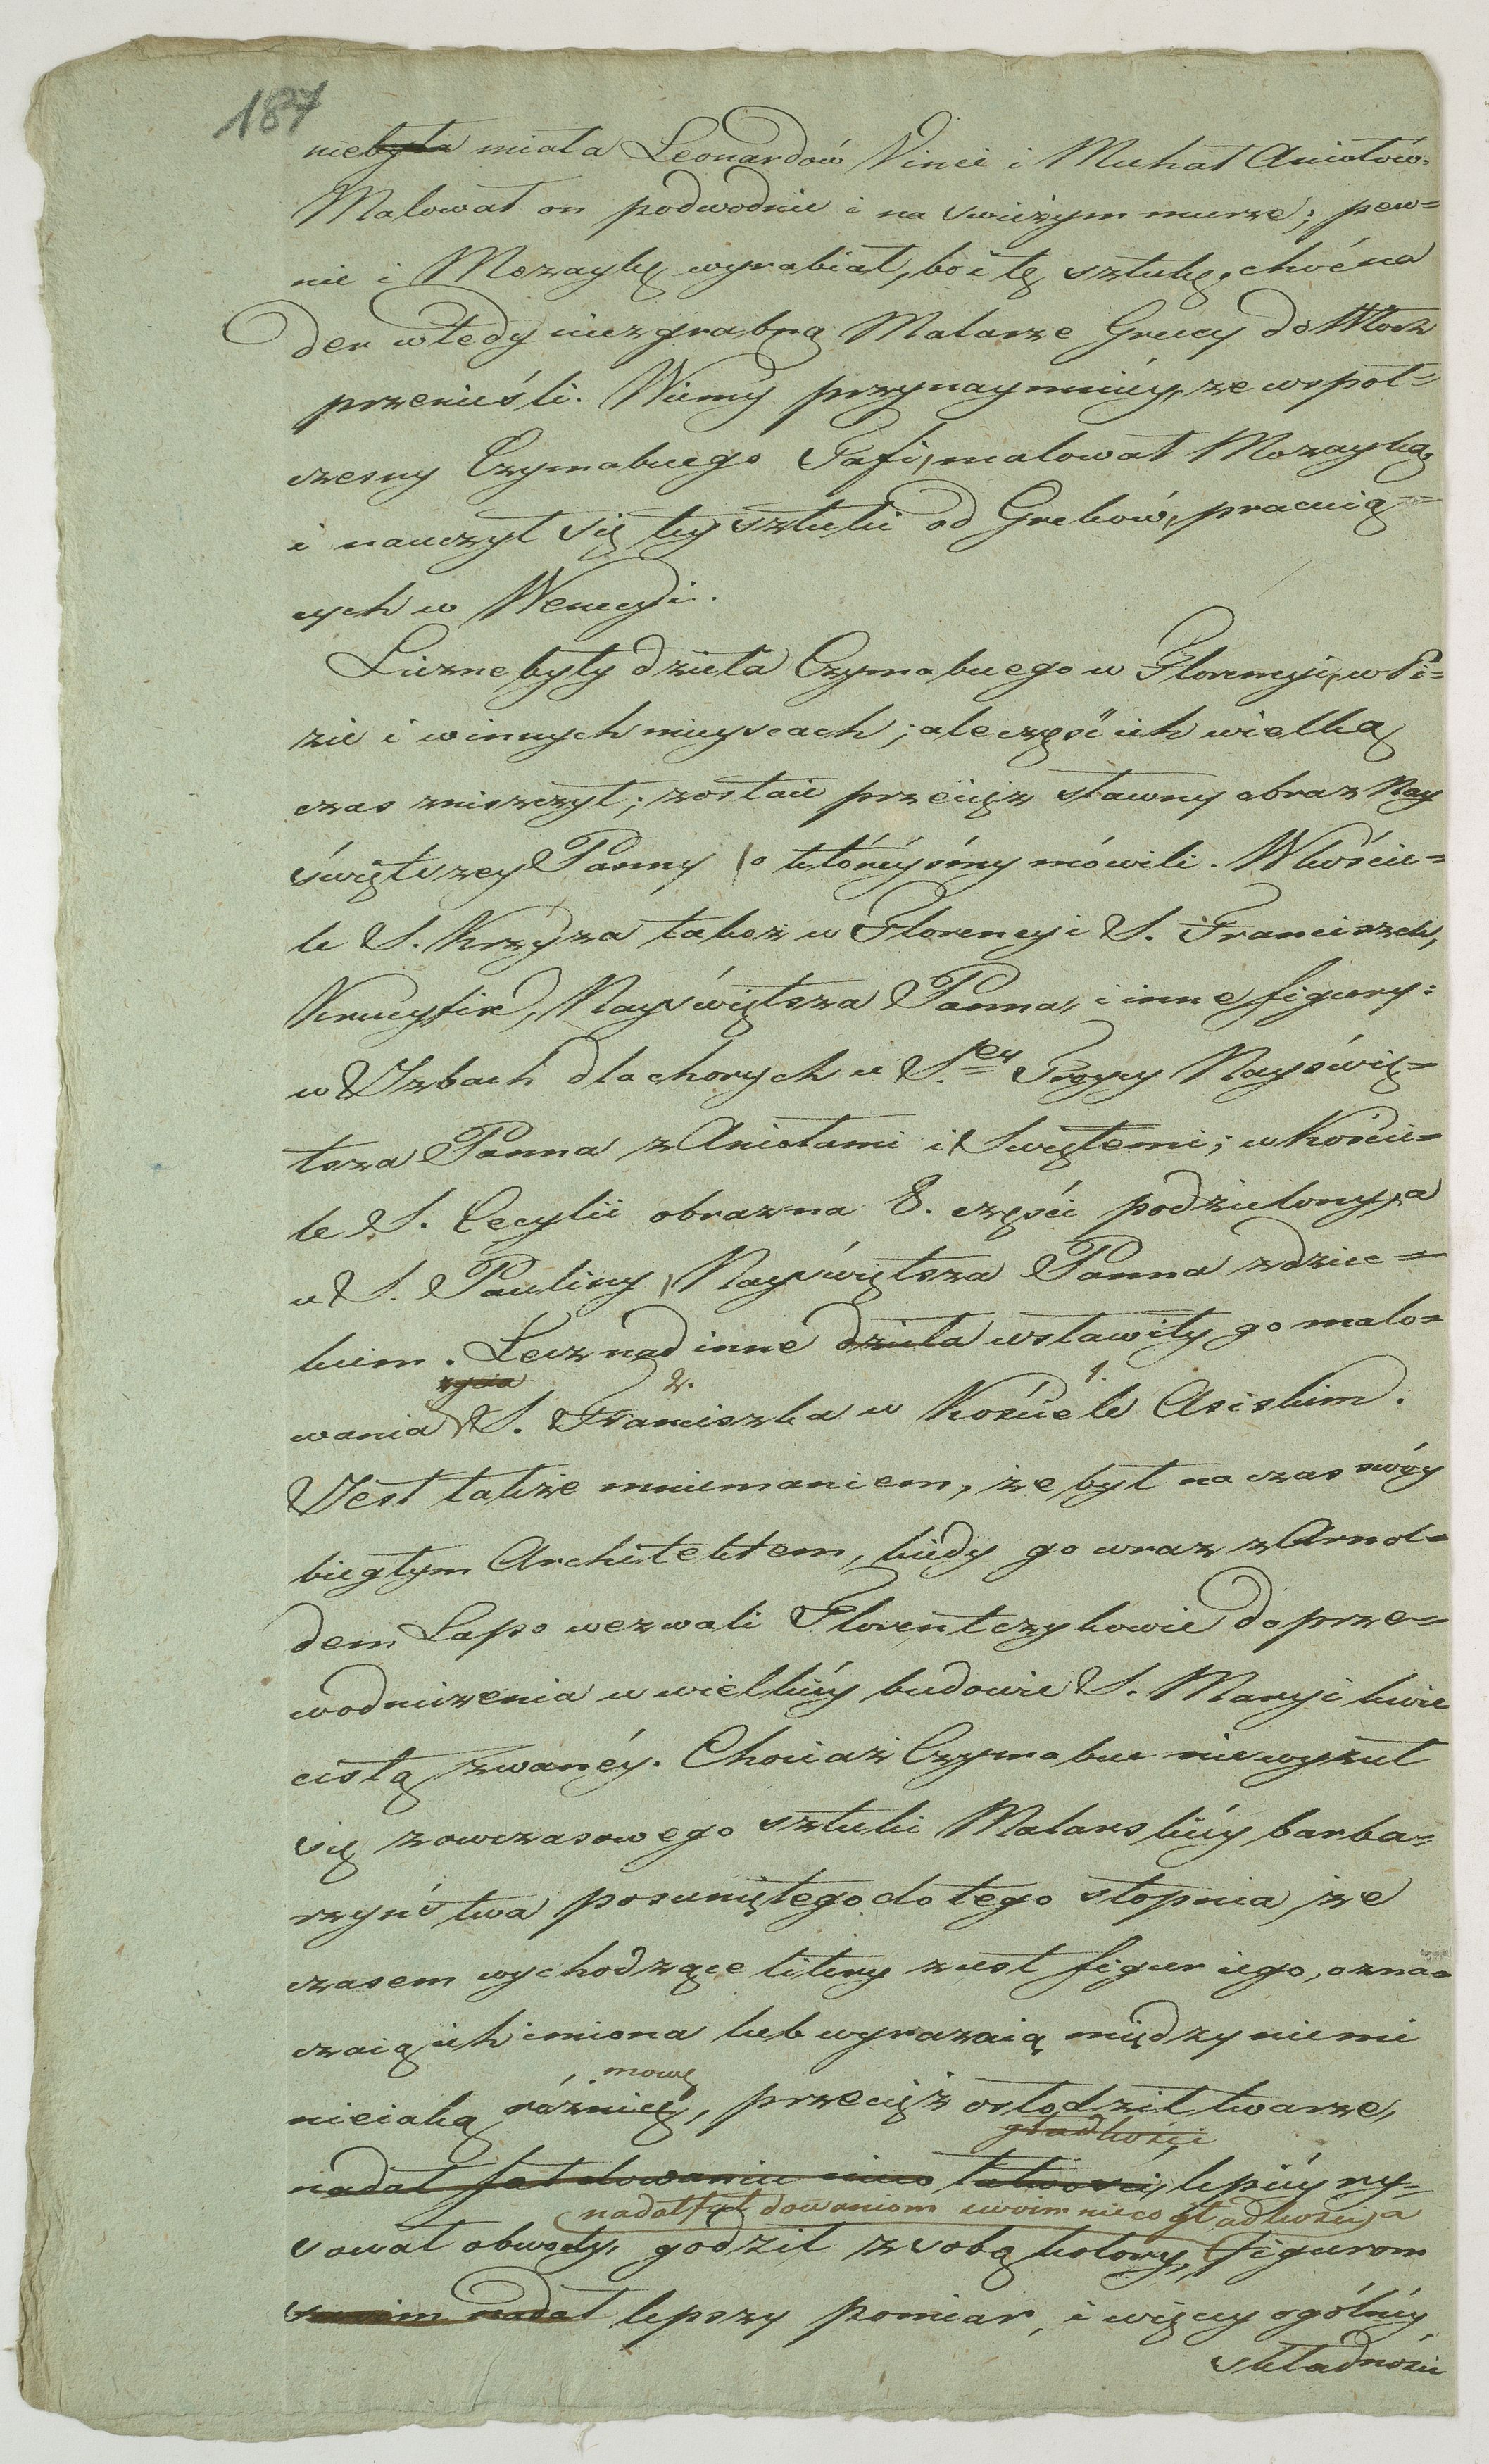 187
niebyła miała Leonardów Vinci i Michał Aniołów.
Malował on podwodnie i na swieżym murze; pew=
nie i Mozaykę wyrabiał, bo i tę sztukę, choć na
der wtedy niezgrabną Malarze Grecy do Włoch
przenieśli. Wiemy przynaymniéy, ze wspol=
czesny Czymabuego Tafi, malował Mozayką
i nauczył się tey sztuki od Greków, pracuią=
cych w Wenecyi.
Liczne były dzieła Czymabuego w Florencyi, w Pi=
zie i winnych mieyscach; ale część ich wielką
czas zniszczył; zostaie przecięż sławny obraz Nay
świętszey Panny o któréyśmy mówili. W koście=
le S. Krzyża takoż w Florencyi S. Franciszek,
Krucyfix, Nayświętsza Panna, i inne figury:
w Izbach dla chorych u S.ey Troycy Nayświę=
tsza Panna z Aniołami i Swiętemi; w koście=
le S. Cecylii obraz na 8. części podzielony, a
u S. Pauliny, Nayświętsza Panna z dziec=
kiem. Lecz nad inne dzieła wsławiły go malo=
życia 2. 1.
wania S. Franciszka w Kościele Asiskim.
Jest także mniemaniem, że był na czas swóy
biegłym Architektem, kiedy go wraz z Arnol=
dem Lapo wezwali Florentczykowie do prze=
wodniczenia w wielkiéy budowie S. Maryi kwie
cistą zwanéy. Chociaż Czymabue niewyzuł
się zowczasowego sztuki Malarskiéy barba=
rzyństwa posuniętego do tego stopnia, że
czasem wychodzące litery z ust figur iego, ozna=
czaią ich imiona lub wyrażaią między niemi
mowę
nieiaką różnicę, przecięż osłodził twarze,
gładkości
nadał fałdowaniu nieco łatwości, lepiéy ry=
nadał fałdowaniom swoim nieco gładkości, a
sował obwody, godził z sobą kolory, figurom
swoim nadał lepszy pomiar, i więcey ogólnéy
składności